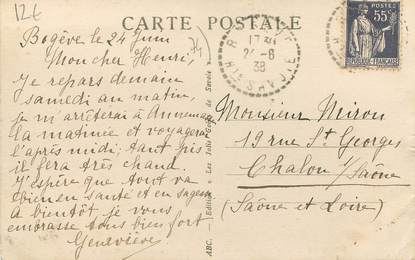 12€
CARTE POSTALE
Bogève le 24 Juin
Mon cher Henri,
Je repars demain
samedi au matin,
je m'arrêterai à Annemasse
la matinée et voyagerai
l'après midi; tant pis
il fera très chaud.
J'espère que tout va
bien en santé et en sagesse
à bientôt je vous
embrasse tous bien fort
Geneviève
ABC.
Edition
Les Jolis
de Savoie
24-6
38
HTE SAVOIE
POSTES
55c
REPUBLIQUE FRANCAISE
Monsieur Miron
19 rue St Georges
Chalon s/Saône
(Saône et Loire)